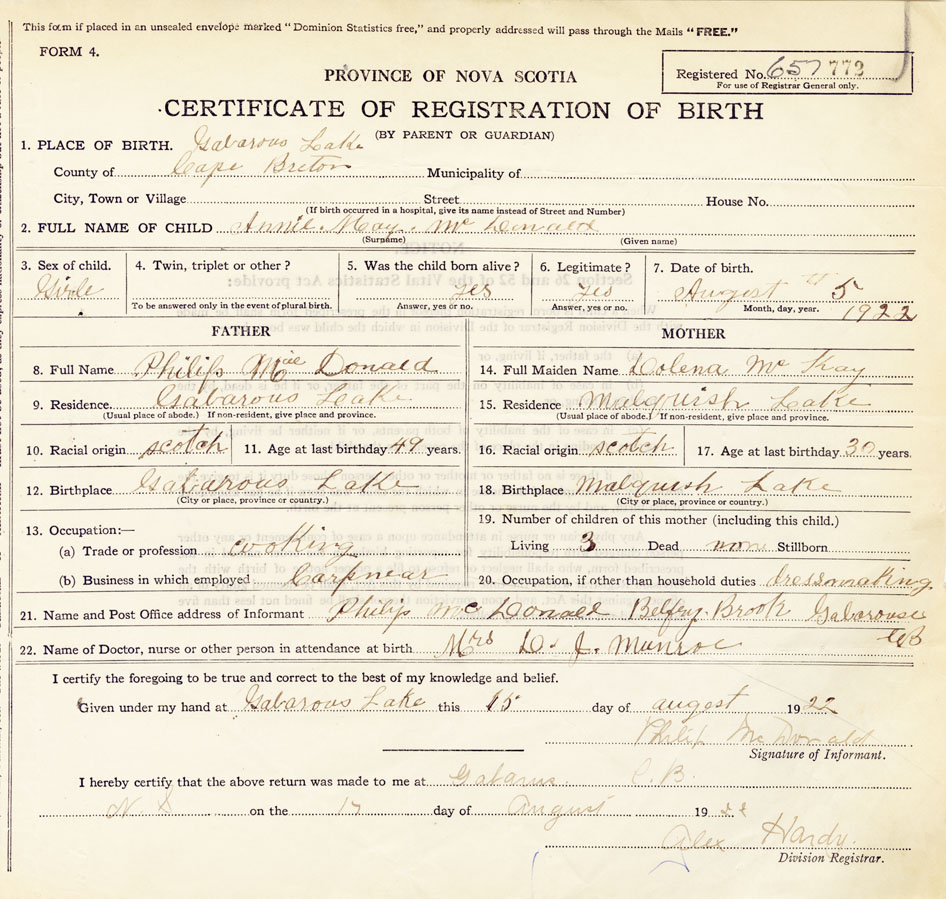 This form if placed in an unsealed envelope marked "Dominion Statistics free," and properly addressed will pass through the Mails "FREE."
FORM 4.
PROVINCE OF NOVA SCOTIA
Registered No. 657 772
For use of Registrar General only.
CERTIFICATE OF REGISTRATION OF BIRTH
(BY PARENT OR GUARDIAN)
1. PLACE OF BIRTH. Gabarous Lake
County of Cape Breton Municipality of
City, Town or Village Street House No.
(If birth occurred in a hospital, give its name instead of Street and Number)
2. FULL NAME OF CHILD Annie. May. Mc Donald
(Surname) (Given name)
3. Sex of child. 4. Twin, triplet or other? 5. Was the child born alive? 6. Legitimate? 7. Date of birth.
Girle yes yes August 5
To be answered only in the event of plural birth. Answer, yes or no. Answer, yes or no. Month, day, year. 1922
FATHER MOTHER
8. Full Name Philip Donald 14. Full Maiden Name Dolena Mc Kay
9. Residence Gabarous Lake 15. Residence Malquish Lake
(Usual place of abode.) If non-resident, give place and province. (Usual place of abode.) If non-resident, give place and province.
10. Racial origin scotch 11. Age at last birthday 49 years. 16. Racial origin scotch 17. Age at last birthday 30 years.
12. Birthplace Gabarous Lake 18. Birthplace Malquish Lake
(City or place, province or country.) (City or place, province or country.)
13. Occupation:— 19. Number of children of this mother (including this child.)
(a) Trade or profession Living 3 Dead Stillborn
(b) Business in which employed 20. Occupation, if other than household duties dressmaking
21. Name and Post Office address of Informant Philip Mc Donald Belfry. Brook Gabarouse
22. Name of Doctor, nurse or other person in attendance at birth. Mrs D. J. Munroe
I certify the foregoing to be true and correct to the best of my knowledge and belief.
Given under my hand at Gabarous Lake this 15 day of augest 1922
Philip McDonald
Signature of Informant.
I hereby certify that the above return was made to me at Gabarus. C.B.
N. S on the 17 day of August 19
Alex Hardy
Division Registrar.